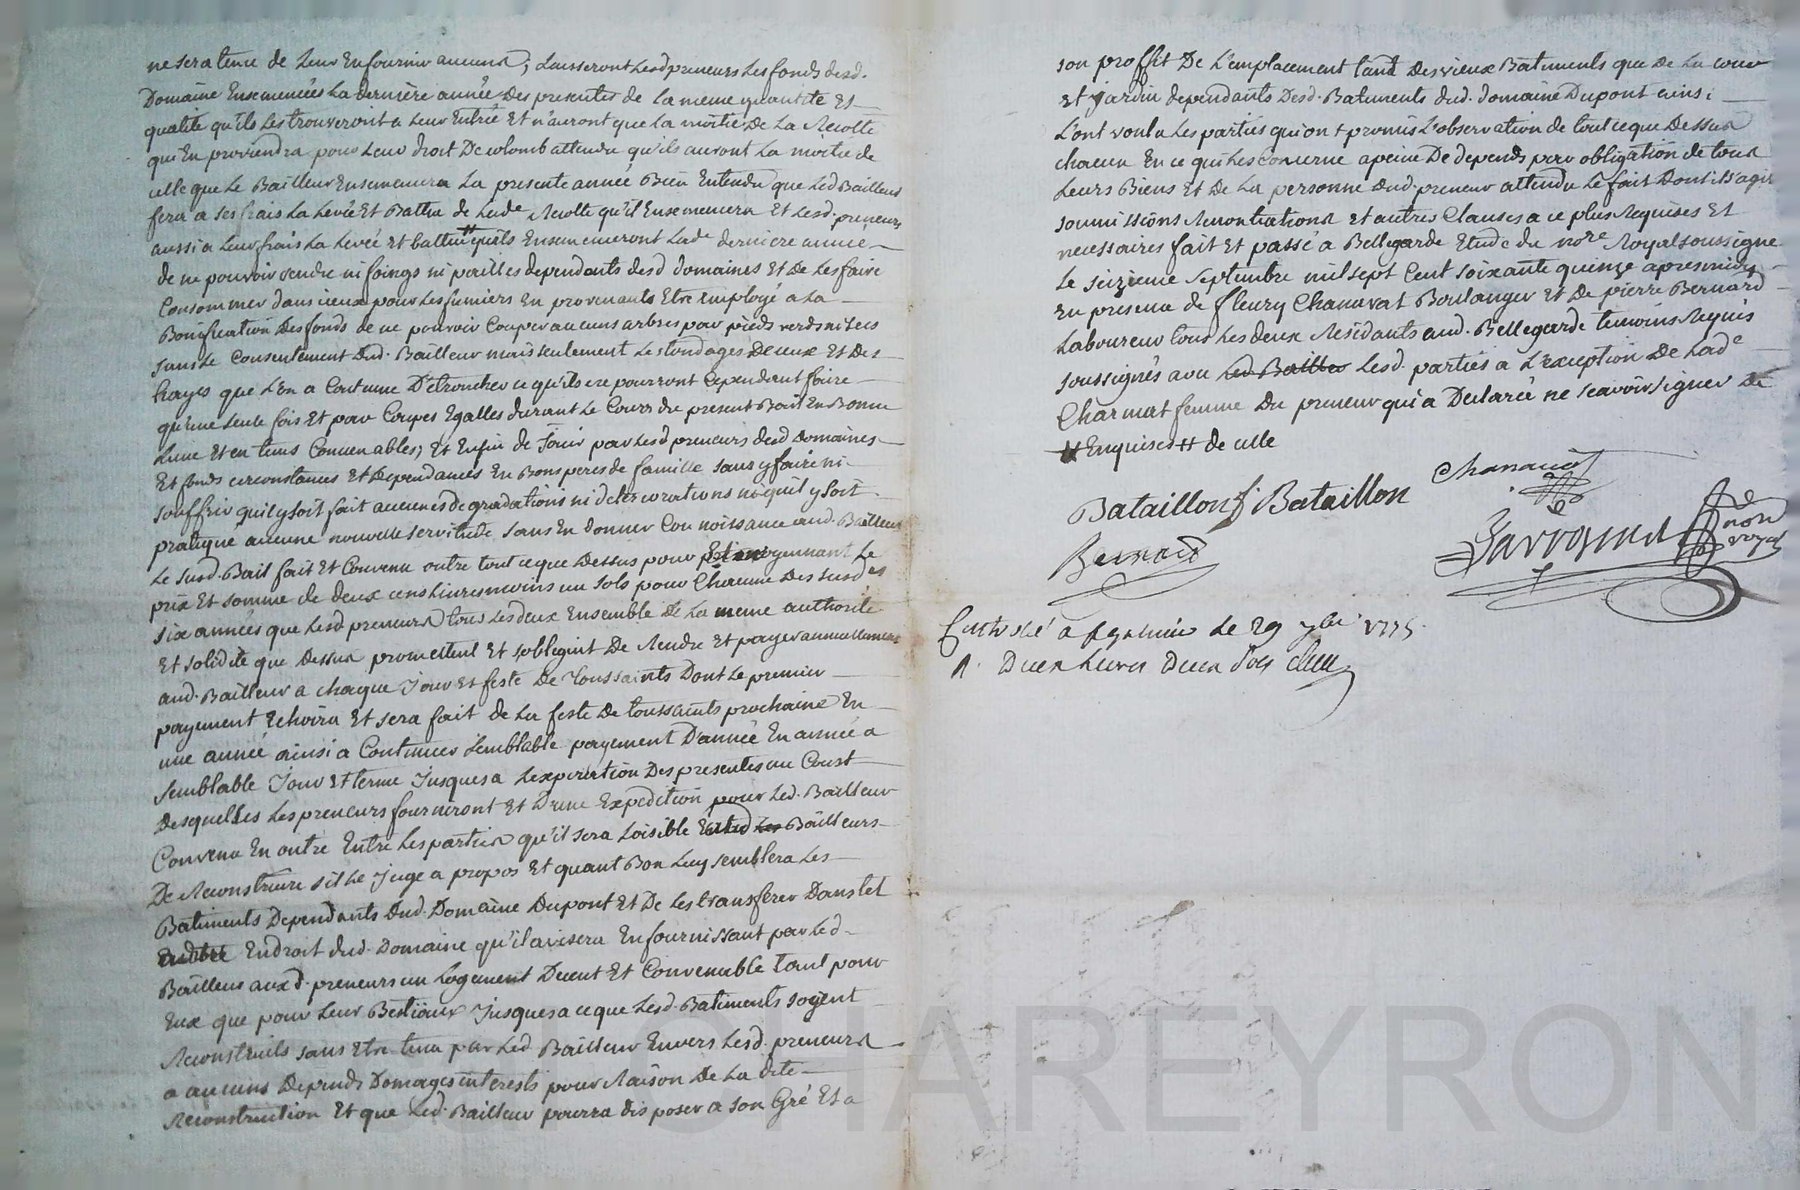 ne sera tenu de Leur En fournir aucuns; Laisseront Lesd preneurs Les fonds desd.
Domaine Ensemencés La dernière année Des presentes de la meme quantité Et
qualité qu'ils Les trouveront a Leur Entrée Et n'auront que La moitié De La Recolte
qui En proviendra pour Leur droit De colomb attendu qu'ils auront La moitié de
celle que Le Bailleur Ensemencera La presente année Bien Entendu que Led Bailleur
fera a ses frais La Levée Et Battu de Lade Recolte qu'il Ensemencera Et Lesd. preneurs
aussi a Leur frais La Levée Et battu # qu'ils Ensemenceront Lade derniere année
de ne pouvoir vendre ni foings ni pailles dependants desd domaines Et De Les faire
Consommer dans iceux pour Les fumiers En provenants Etre Employé a La
Bonification Des fonds de ne pouvoir Couper aucuns arbres par pieds verds ni secs
sans Le Consentement Dud. Bailleur mais seulement Les tondages De ceux Et Des
hayes que L'on a Coutume D'etroncher ce qu'ils ne pourront Cependant faire
qu'une seule fois Et par Coupes Egalles durant Le Cours du present Bail En Bonne
Lune Et en tems Convenables, Et Enfin de Jouir par Lesd preneurs desd Domaines
Et fonds circonstances Et Dependances En Bons peres de famille sans y faire ni
souffrir quil y soit fait aucunes degradations ni deteriorations ni quil y soit
pratiqué aucune nouvelle servitude sans En donner Connoissance aud. Bailleur
Le susd. Bail fait Et Convenu outre tout ce que Dessus pour Et moyennant Le
prix Et somme de deux cens Livres moins un sols pour Chacune Des susdes
six années que Lesd preneurs tous Les deux Ensemble De La meme authorité
Et solidité que Dessus promettent Et sobligent De Rendre Et payer annuellement
aud. Bailleur a chaque Jour Et feste De Toussaints Dont Le premier
payement Echoira Et sera fait de La feste De toussaints prochaine En
une année ainsi a Continuer semblable payement D'année En année a
semblable Jour Et terme Jusques a Lexpiration Des presentes au Coust
Desquelles Les preneurs fourniront Et D'une Expedition pour Led. Bailleur
Convenu En outre Entre Les parties qu'il sera Loisible Bailleurs
De Reconstruire s'il Le Juge a propos Et quant Bon Luy semblera Les
Batiments Dependants Dud. Domaine Dupont Et De Les transferer Dans tel
Endroit dud. Domaine qu'il avisera En fournissant par Led
Bailleur aux d. preneurs un Logement Decent Et Convenable tant pour
Eux que pour Leur Bestiaux Jusques a ce que Lesd. Batiments soyent
Reconstruits sans Etre tenu par Led Bailleur Envers Lesd. preneurs
a aucuns Depends Domages interests pour Raison De La dite
Reconstruction Et que Led. Bailleur pourra disposer a son Gré Et a
son proffit De L'emplacement tant Des vieux Batiments que De La cour
et Jardin dependants Desd. Batiments dud. domaine Dupont ainsi
L'ont voulu Les parties qui ont promis L'observation de tout ce que Dessus
chacun En ce qui Les Concerne a peine De depends par obligation de tous
Leurs Biens Et De La personne dud. preneur attendu Le fait Dont il s'agit
soumissions Renontiations Et autres Clauses a ce plus Requises Et
necessaires fait Et passé a Bellegarde Etude du nore Royal soussigné
Le seizieme septembre mil sept Cent soixante quinze apres midy
En presence de fleury Chanavat Boulanger Et De pierre Bernard
Laboureur tous Les deux Residants aud. Bellegarde temoins Requis
soussignés avec Led Bailleur Lesd. parties a L'exception De Lade
Charmat femme Du preneur qui a Declaré ne scavoir signer de
# Enquised # de celle
Bataillon f Bataillon
Chanavat
Bernard
non
royal
Controlé a le 29 7bre 1775